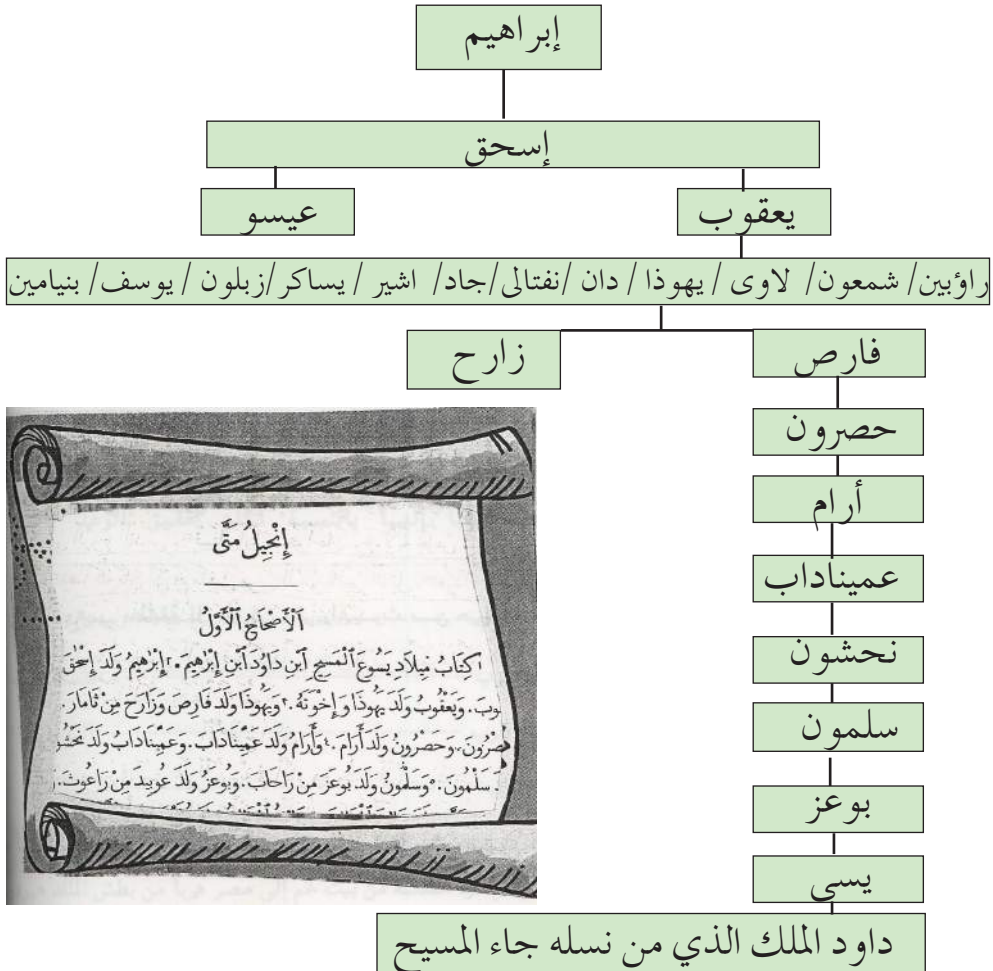 إبراهيم
إسحق
يعقوب
عيسو
راؤبين/ شمعون/ لاوى / يهوذا / دان /نفتالى/جاد/ اشير / يساكر/زبلون / يوسف/ بنيامين
فارص
زارح
حصرون
أرام
عميناداب
نحشون
سلمون
بوعز
يسى
داود الملك الذي من نسله جاء المسيح
إِنْجِيلُ مَتَّى
اَلْأَصْحَاحُ ٱلْأَوَّلُ
١كِتَابُ مِيلَادِ يَسُوعَ ٱلْمَسِيحِ ٱبْنِ دَاوُدَ ٱبْنِ إِبْرٰهِيمَ. ٢إِبْرٰهِيمُ وَلَدَ إِسْحٰقَ
وبَ. وَيَعْقُوبُ وَلَدَ يَهُوذَا وَإِخْوَتَهُ. ٣وَيَهُوذَا وَلَدَ فَارِصَ وَزَارَحَ مِنْ ثَامَارَ.
حَصْرُونَ. وَحَصْرُونُ وَلَدَ أَرَامَ. ٤وَأَرَامُ وَلَدَ عَمِّينَادَابَ. وَعَمِّينَادَابُ وَلَدَ نَحْشُو
سَلْمُونَ. ٥وَسَلْمُونُ وَلَدَ بُوعَزَ مِنْ رَاحَابَ. وَبُوعَزُ وَلَدَ عُوبِيدَ مِنْ رَاعُوثَ.